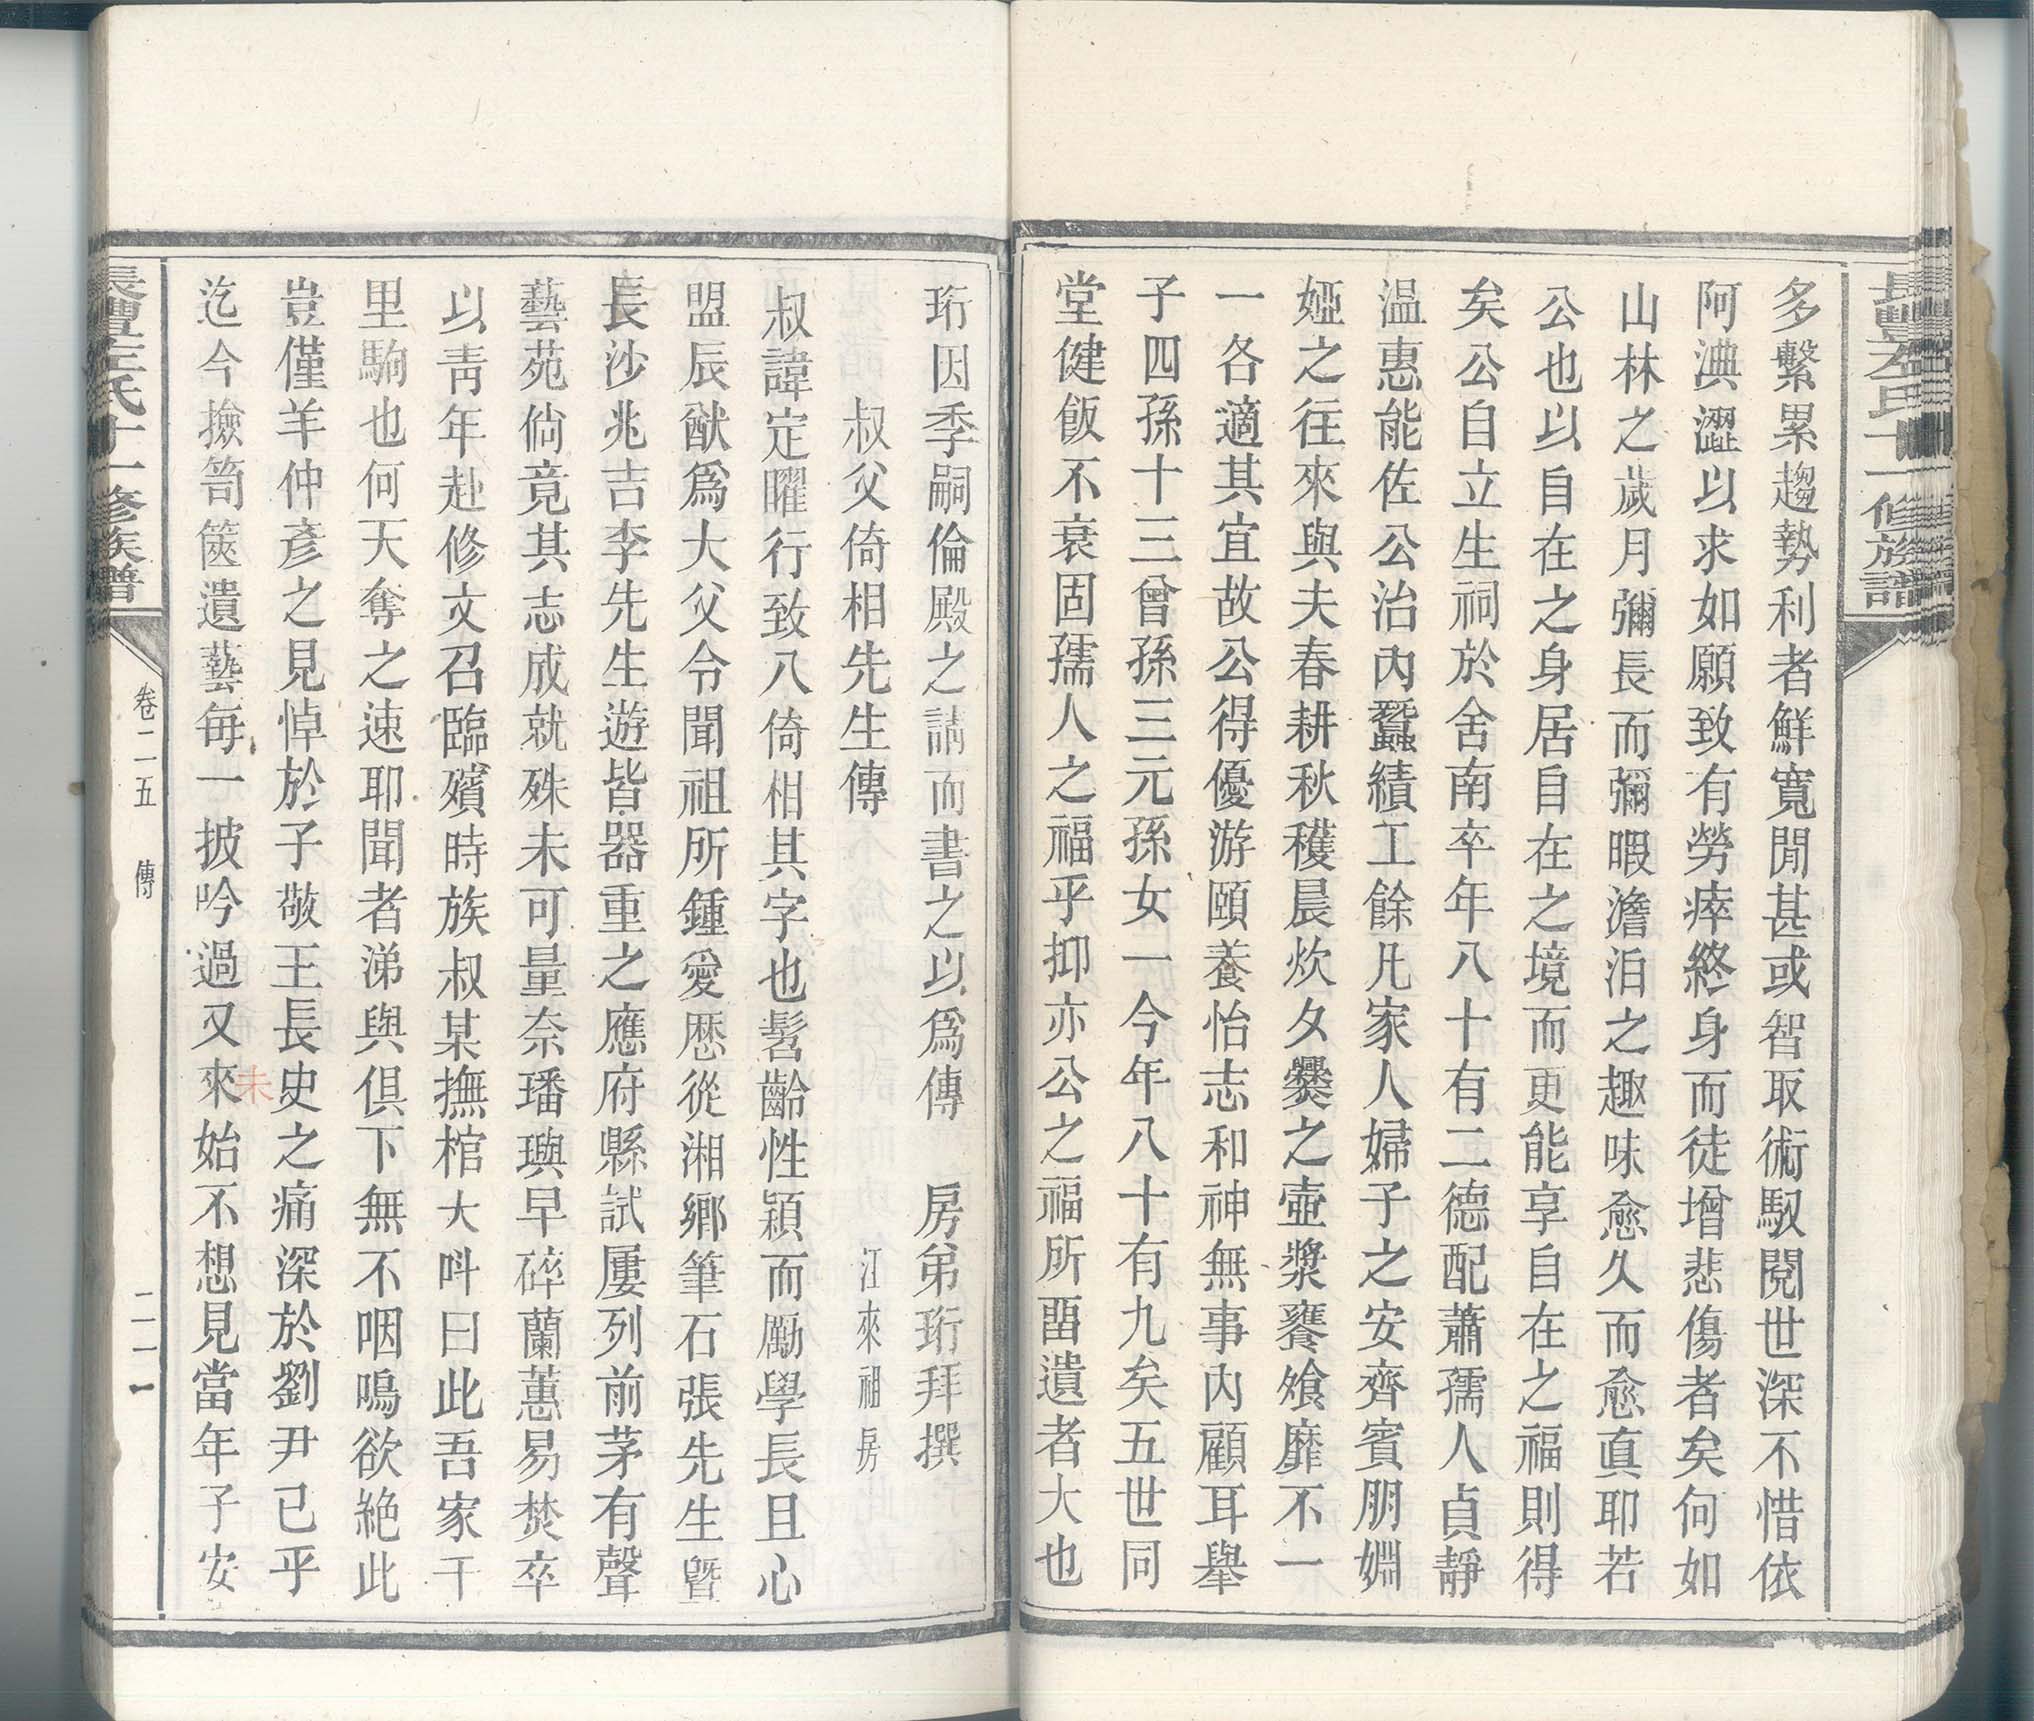 多繫累趨勢利者鮮寬閒甚或智取術馭閱世深不惜依
阿淟澀以求如願致有勞瘁終身而徒增悲傷者矣何如
山林之歲月彌長而彌暇澹泊之趣味愈久而愈真耶若
公也以自在之身居自在之境而更能享自在之福則得
矣公自立生祠於舍南卒年八十有二德配蕭孺人貞靜
温惠能佐公治內蠶績工餘凡家人婦子之安齊賓朋婣
婭之往來與夫春耕秋穫晨炊夕爨之壺漿饔飧靡不一
一各適其宜故公得優游頤養怡志和神無事內顧耳舉
子四孫十三曾孫三元孫女一今年八十有九矣五世同
堂健飯不衰固孺人之福乎抑亦公之福所畱遺者大也
珩因季嗣倫殿之請而書之以爲傳　房弟珩拜撰
叔父倚相先生傳　江來祖房
叔諱定曜行致八倚相其字也髫齡性穎而勵學長且心
盟辰猷爲大父令聞祖所鍾愛歷從湘鄉筆石張先生曁
長沙兆吉李先生遊皆器重之應府縣試屢列前茅有聲
藝苑倘竟其志成就殊未可量奈璠璵早碎蘭蕙易焚卒
以靑年赴修文召臨殯時族叔某撫棺大呌曰此吾家千
里駒也何天奪之速耶聞者涕與俱下無不咽嗚欲絶此
豈僅羊仲彥之見悼於子敬王長史之痛深於劉尹已乎
迄今撿笥篋遺藝每一披吟過又來始不想見當年子安
未
長豐左氏十一修族譜
卷二五　傳
二一一